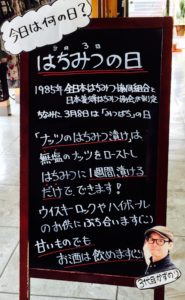 今日は何の日？
8 3
はちみつの日
1985年 全日本はちみつ協同組合と
日本養蜂はちみつ協会が制定
ちなみに 3月8日は「みつばち」の日
「ナッツのはちみつ漬け」は
無塩のナッツをローストし
はちみつに1週間漬ける
だけで、できます！
ウイスキーロックやハイボール
のお供にぶち合います
甘いものでも
お酒は飲めます
3代目かずの